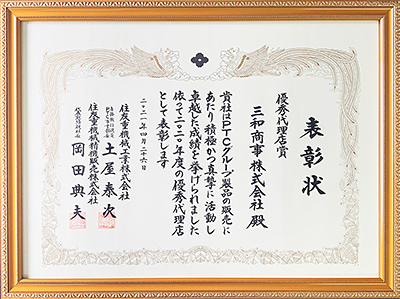 表彰状
優秀代理店賞
三和商事株式会社 殿
貴社はPTCグループ製品の販売に
あたり積極かつ真摯に活動し
卓越した成績を挙げられました
依って二〇二〇年度の優秀代理店
として表彰します
二〇二一年四月二十六日
住友重機械工業株式会社
土屋泰次
住友重機械精機販売株式会社
岡田典夫